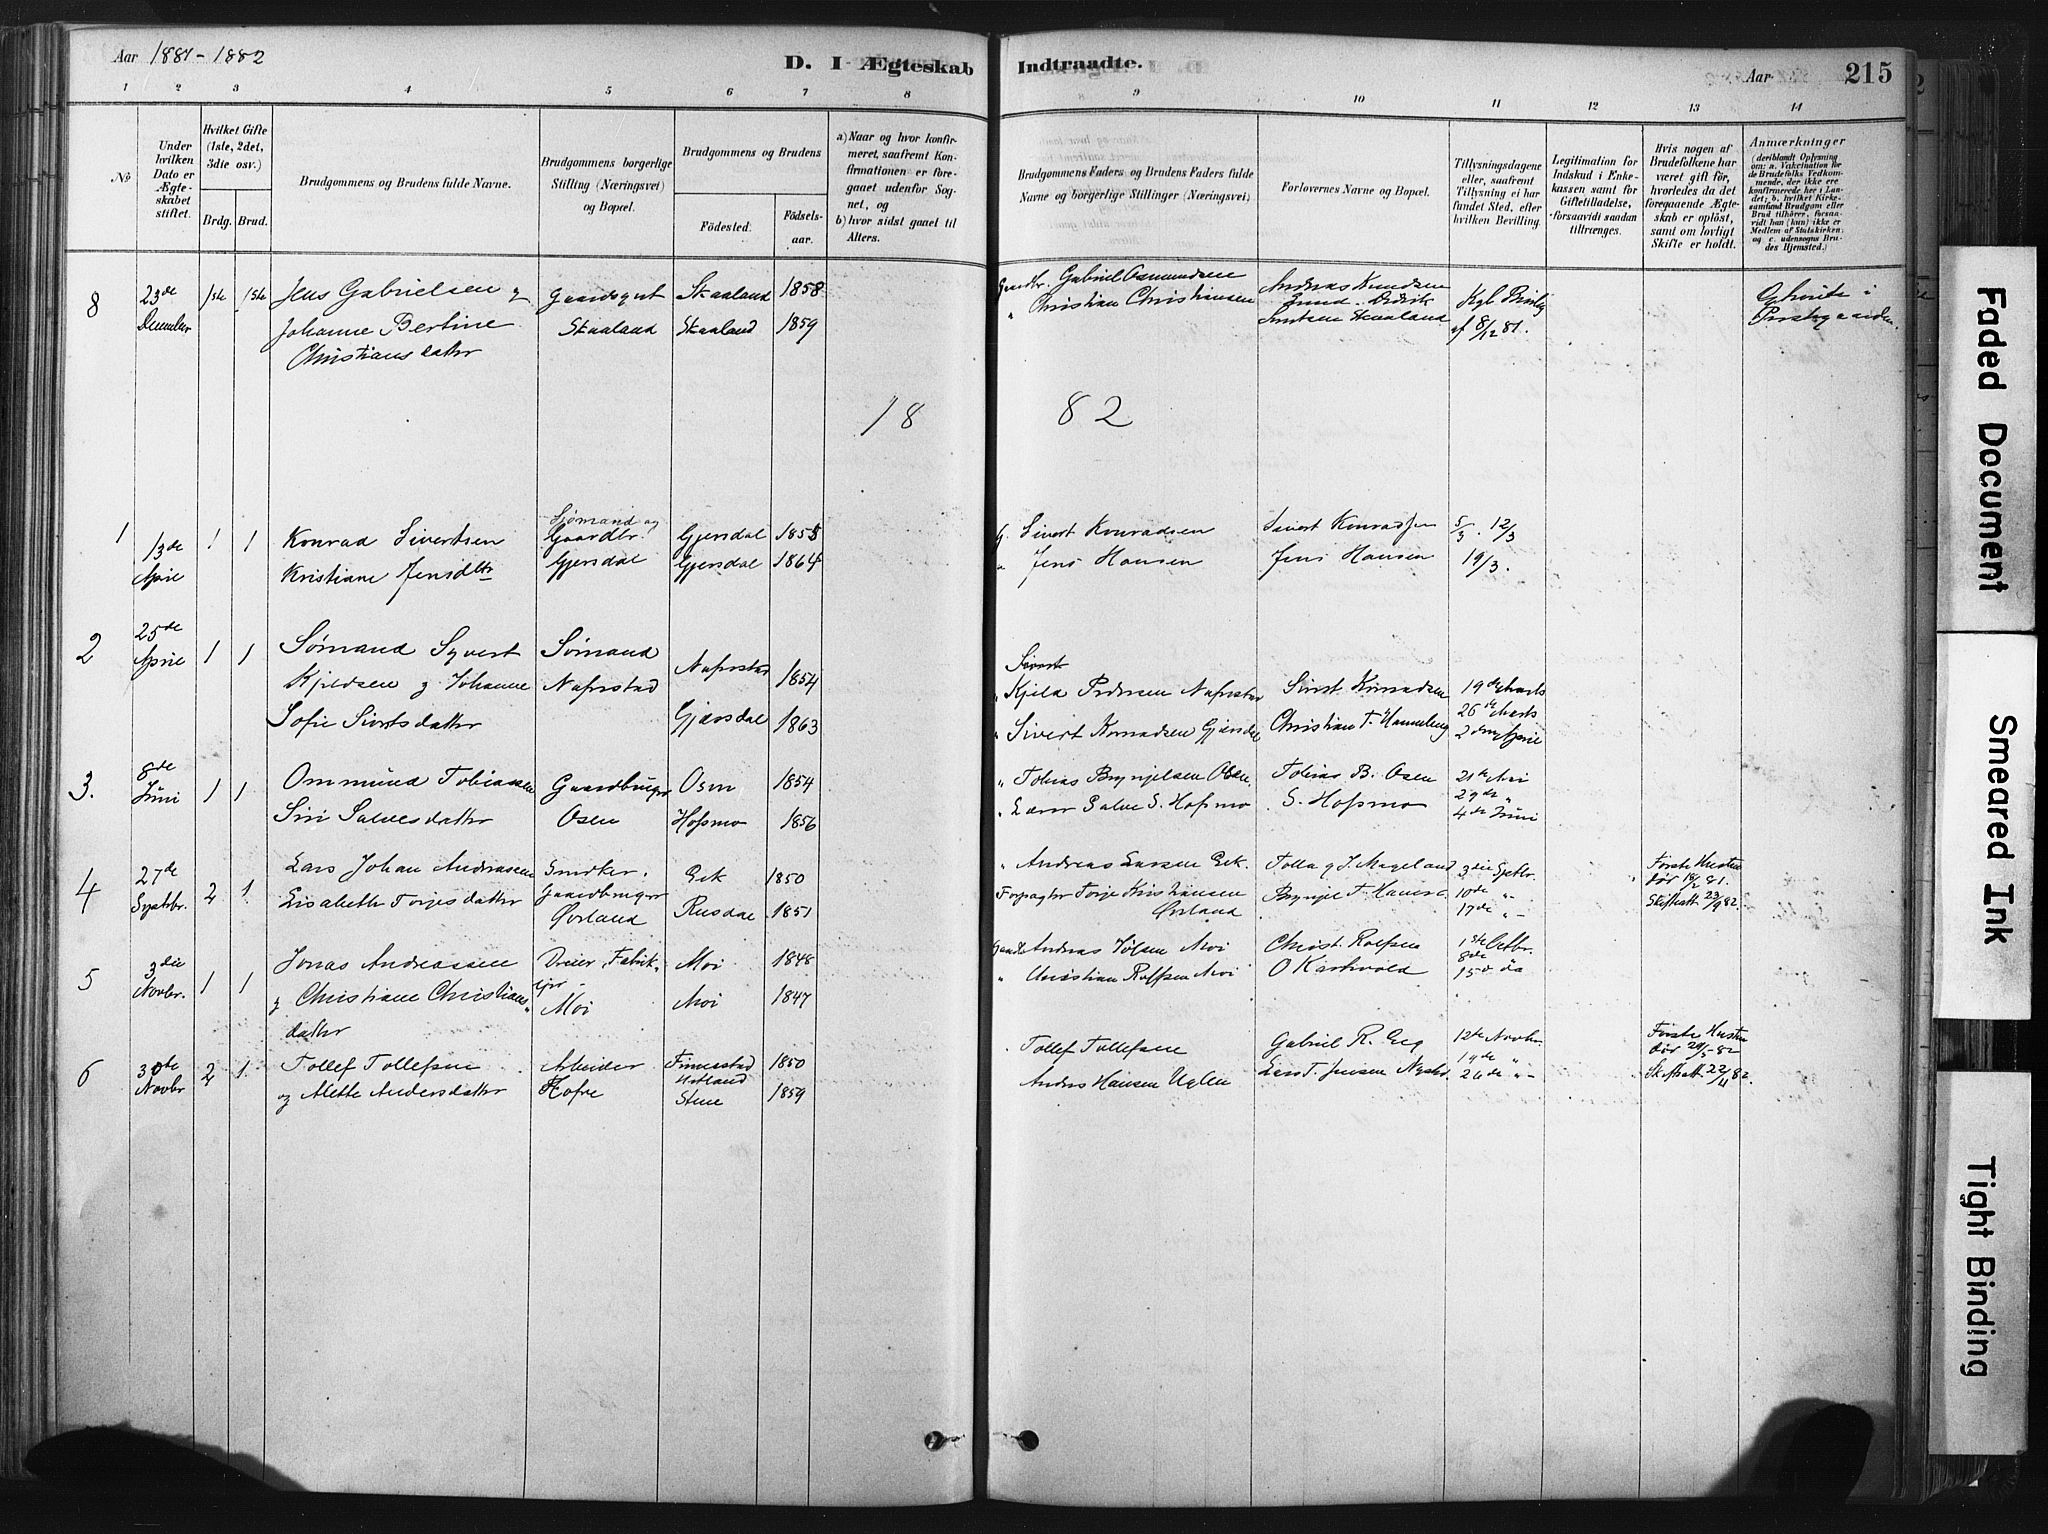 Aar 1881-1882
D. I Ægteskab
Indtraadte.
Aar
215
1 2 3 4 5 6 7 8 9 10 11 12 13 14
No
Under hvilken Dato er Ægteskabet stiftet.
Hvilket Gifte (1ste, 2det, 3die osv.)
Brdg. Brud.
Brudgommens og Brudens fulde Navne.
Brudgommens borgerlige Stilling (Næringsvei) og Bopæl.
Brudgommens og Brudens
Fødested.
Fødselsaar.
a) Naar og hvor konfirmeret, saafremt Konfirmationen er foregaaet udenfor Sognet, og
b) hvor sidst gaaet til Alters.
Brudgommens Faders og Brudens Faders fulde Navne og borgerlige Stillinger (Næringsvei)
Forlovernes Navne og Bopæl.
Tillysningsdagene eller, saafremt Tillysning ei har fundet Sted, efter hvilken Bevilling
Legitimation for Indskud i Enkekassen samt for Giftetilladelse, forsaavidt saadan tiltrænges.
Hvis nogen af Brudefolkene har været gift før, hvorledes da det foregaaende Ægteskab er opløst, samt om lovligt Skifte er holdt.
Anmærkninger
(deriblandt Oplysning om: a. Vakcination for de Brudefolks Vedkommende, der ikke ere konfirmerede her i Landet; b. hvilket Kirkesamfund Brudgom eller Brud tilhører, forsaavidt han (hun) ikke er Medlem af Statskirken, og c. udensogns Brudes Hjemsted.)
8
23de December
1ste 1ste
Jens Gabrielsen og
Johanne Bertine
Christiansdatter
Gaardsgut
Skaaland
Skaaland 1858
Skaaland 1859
Gaardbr. Gabriel Osmundsen
" Christian Christiansen
Andreas Knudsen
Skaaland
Kgl
af 8/12 81.
i
Præstegaarden
18 82
1
13de April
1 1
Konrad Sivertsen
Kristiane Jensdtr
Sjømand og
Gaardbr.
Gjersdal
Gjersdal 1858
Gjersdal 1864
G. Sivert Konradsen
" Jens Hansen
Sivert Konradsen
Jens Hansen
5/3. 12/3
19/3.
2
25de April
1 1
Sømand Syvert
Kjeldsen og Johanne
Sofie Sivertsdatter
Sømand
Nafrstad
Nafrstad 1854
Gjersdal 1863
Sivert
" Kjeld Pedersen Nafrstad
" Sivert Konradsen Gjersdal
Sivert Konradsen
Christian T.
19de Marts
26de Marts
2den April
3.
8de Juni
1 1
Ommund Tobiassen
Siri Salvesdatter
Gaardbruger
Osen
Osen 1854
Hofsmo 1856
" Tobias Brynjelsen Osen.
" Salve S. Hofsmo
Tobias B. Osen
S. Hofsmo
21de Mai
29de "
4de Juni
4
27de Septbr.
2 1.
Lars Johan Andreassen
Elisabeth Torjesdatter
Snedker.
Gaardbruger
Øvrland
Eek 1850
Rusdal 1851
" Andreas Larsen Eek.
Forpagter Torje Kristiansen
Øvrland
Tolla og J. Mageland
Brynjel T.
3die Septbr.
10de "
17de "
Første Hustru
død 18/2 81.
Skifteatt 23/9 82.
5
3die Novbr.
1 1
Jonas Andreassen
og Christiane Christians-
datter
Dreier, Fabrik-
eier
Moi
Moi 1848
Moi 1847
Gaardbr. Andreas Jølsen Moi
" Christian Rolfsen Moi
Christ. Rolfsen
O Karhvold
1ste Octbr.
8de
15de do
6
30te Novbr
2 1.
Tollef Tollefsen
og Alette Andersdatter
Arbeider
Hofre
Finnestad 1850
Stene 1859
Tollef Tollefsen
Anders Hansen Uglen
Gabriel R. Eeg
Lars T. Jensen
12te Novbr
19de "
26de "
Første Hustru
død 29/5 82
Skifteatt. 22/11 82.
Faded Document
Smeared Ink
Tight Binding